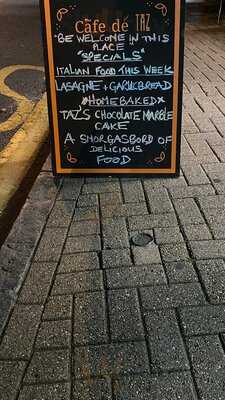 Cafe de TAZ
"BE WELCOME IN THIS
PLACE"
"SPECIALS"
ITALIAN FOOD THIS WEEK
LASAGNE + GARLICBREAD
*HOMEBAKED*
TAZ'S CHOCOLATE MARBLE
CAKE
A SMORGASBORD OF
DELICIOUS
FOOD